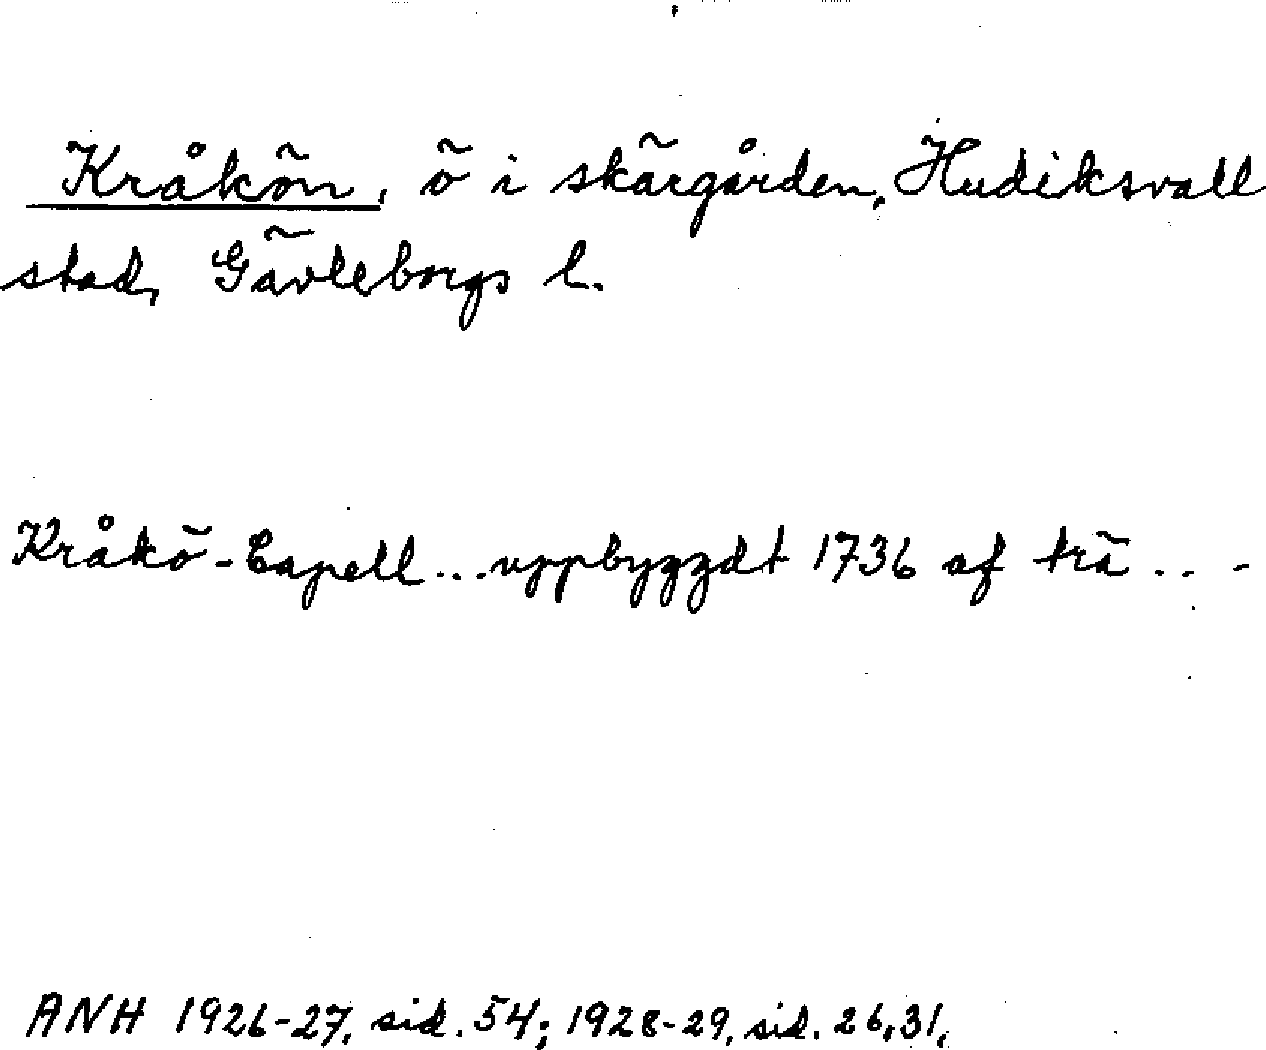 Kråkön, ö i skärgården, Hudiksvall
stad, Gävleborgs l.
Kråkö-Capell...uppbygdt 1736 af trä...-
ANH 1926-27, sid. 54; 1928-29, sid. 26,31,